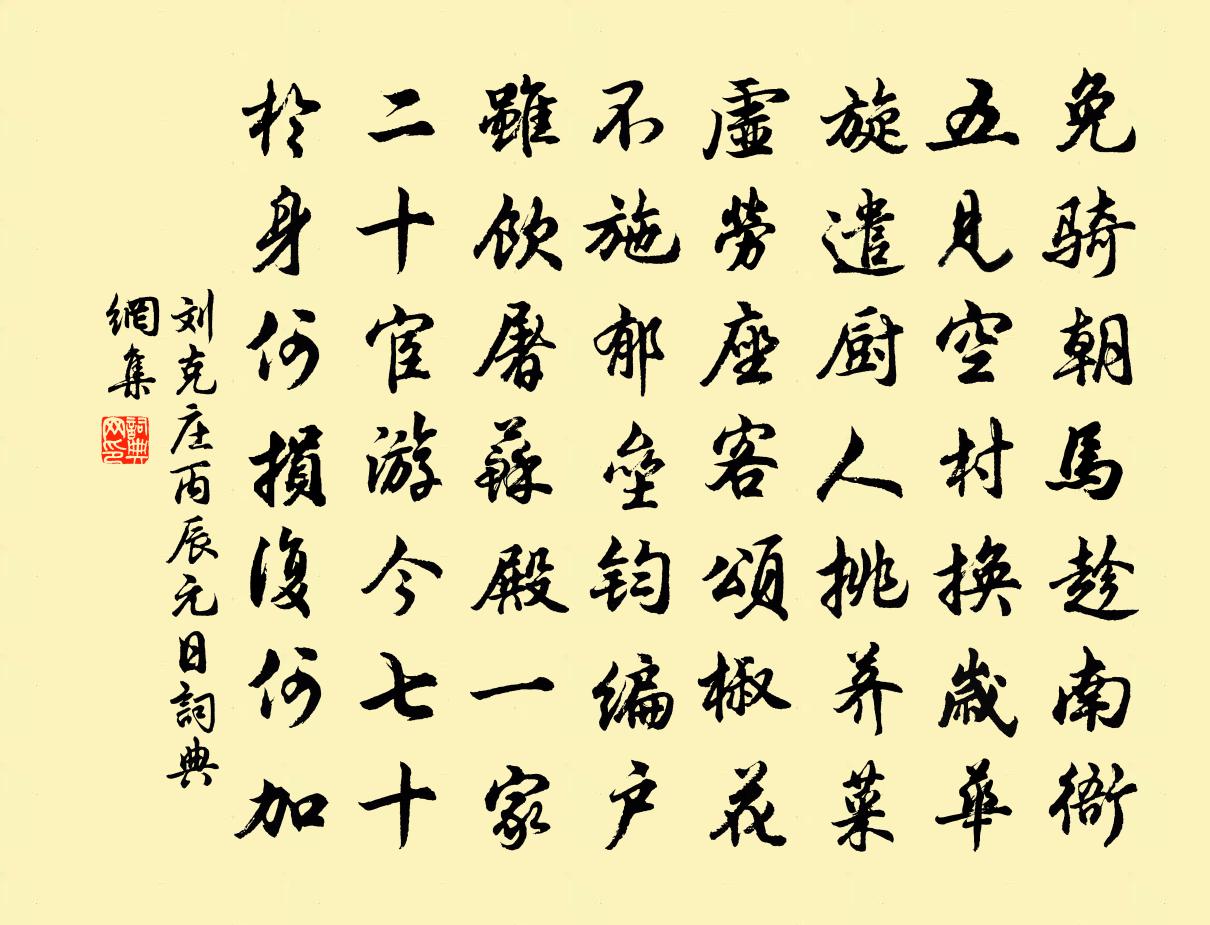 免骑朝馬趁南衙
五見空村換歲華
旋遣厨人挑荠菜
虛勞座客頌椒花
不施郁壘钧编户
雖飲屠蘇殿一家
二十宦游今七十
於身何損復何加
刘克庄丙辰元日詞典
網集
詞典網印